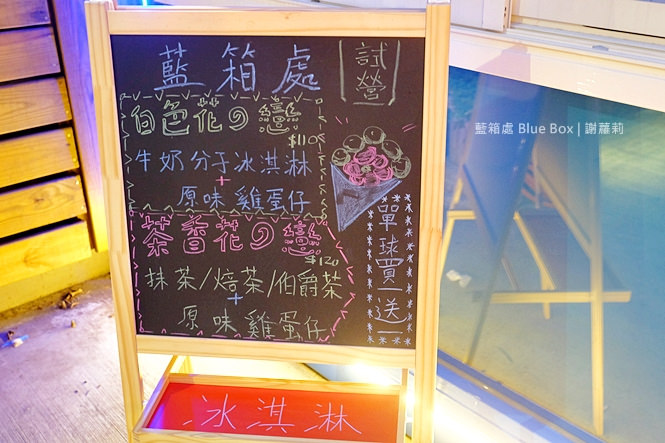 藍箱處
試營
白色花の戀
$110
牛奶分子冰淇淋
+
原味雞蛋仔
茶香花の戀
$120
抹茶/焙茶/伯爵茶
+
原味雞蛋仔
單球買一送一
冰淇淋
藍箱處 Blue Box | 謝蘿莉